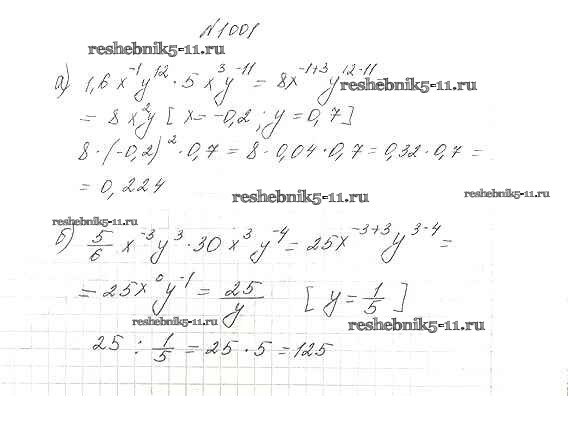 №1001
reshebnik5-11.ru
а) 1,6 x⁻¹y¹² · 5 x³y⁻¹¹ = 8x⁻¹⁺³y¹²⁻¹¹ =
reshebnik5-11.ru
= 8 x²y [ x = -0,2 ; y = 0,7 ]
8 · (-0,2)² · 0,7 = 8 · 0,04 · 0,7 = 0,32 · 0,7 =
= 0,224
reshebnik5-11.ru
reshebnik5-11.ru
reshebnik5-11.ru
б) 5/6 x⁻³y³ · 30 x³y⁻⁴ = 25x⁻³⁺³y³⁻⁴ =
= 25x⁰y⁻¹ = 25/y [ y = 1/5 ]
reshebnik5-11.ru
reshebnik5-11.ru
25 : 1/5 = 25 · 5 = 125